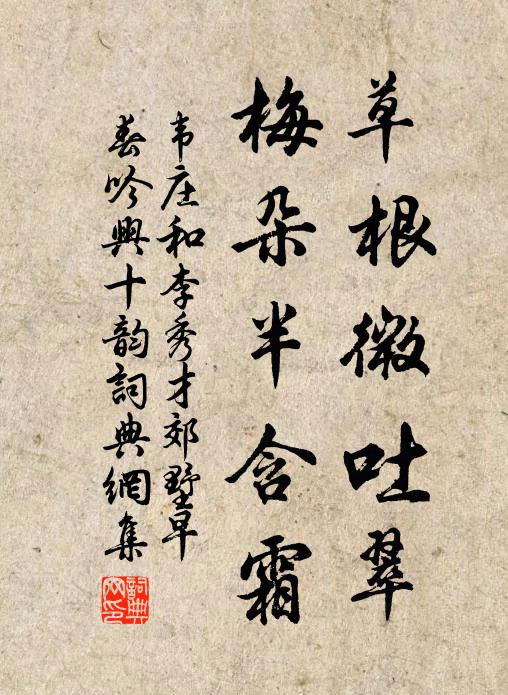 草根微吐翠
梅朵半含霜
韦庄和李秀才郊墅早
春吟興十韵詞典網集
詞典
网印